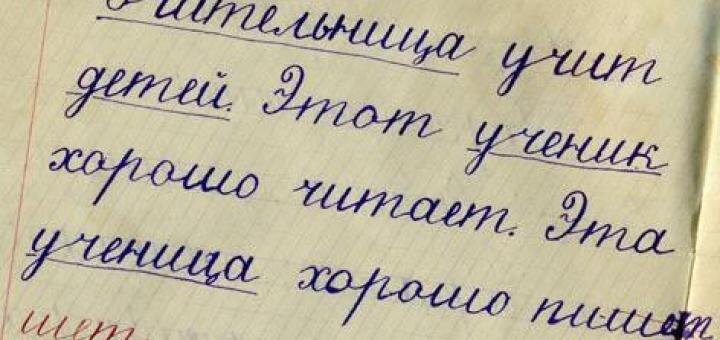 Учительница учит
детей. Этот ученик
хорошо читает. Эта
ученица хорошо пишет
шет.